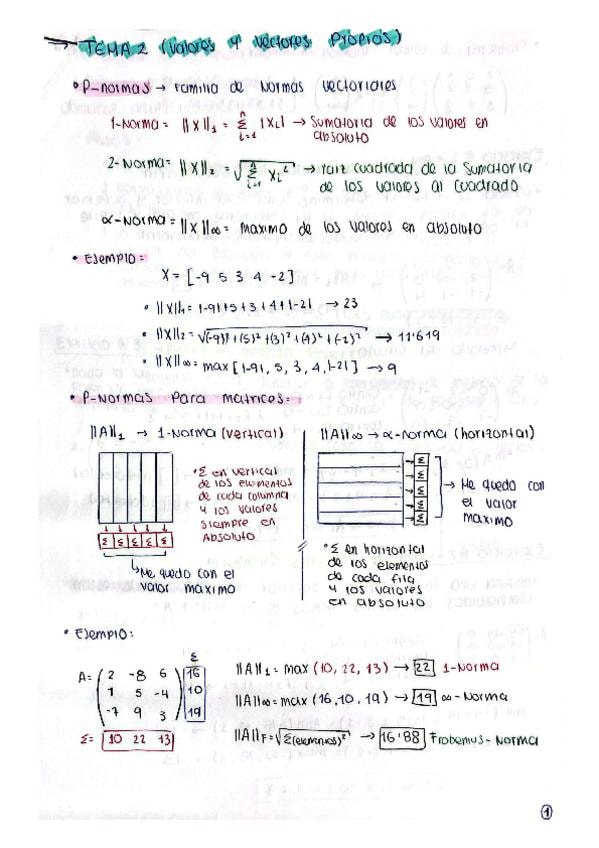 → TEMA 2 (Valores y Vectores Propios)
• P-normas → Familia de Normas Vectoriales
1-Norma = ||X||₁ = Σⁿᵢ₌₁ |Xᵢ| → Sumatoria de los valores en
absoluto
2-Norma = ||X||₂ = √(Σⁿᵢ₌₁ Xᵢ²) → raiz cuadrada de la Sumatoria
de los valores al cuadrado
α-Norma = ||X||∞ = maximo de los valores en absoluto
• Ejemplo:
X = [-9 5 3 4 -2]
• ||X||₁ = |-9|+5+3+4+|-2| → 23
• ||X||₂ = √((-9)²+(5)²+(3)²+(4)²+(-2)²) → 11'619
• ||X||∞ = max [|-9|, 5, 3, 4, |-2|] → 9
• P-Normas Para Matrices:
||A||₁ → 1-Norma (vertical)
• Σ en vertical
de los elementos
de cada columna
y los valores
siempre en
Absoluto
Σ Σ Σ Σ Σ
Me quedo con el
valor máximo
||A||∞ → α-Norma (horizontal)
Σ
Σ
Σ
Σ
Σ
→ Me quedo con
el valor
maximo
• Σ en horizontal
de los elementos
de cada fila
y los valores
en absoluto
• Ejemplo:
Σ
A = ( 2 -8 6 ) 16
1 5 -4 10
-7 9 3 19
Σ = 10 22 13
||A||₁ = max (10, 22, 13) → 22 1-Norma
||A||∞ = max (16, 10, 19) → 19 ∞-Norma
||A||F = √(Σ(elementos)²) → 16'88 Frobenius-Norma
1